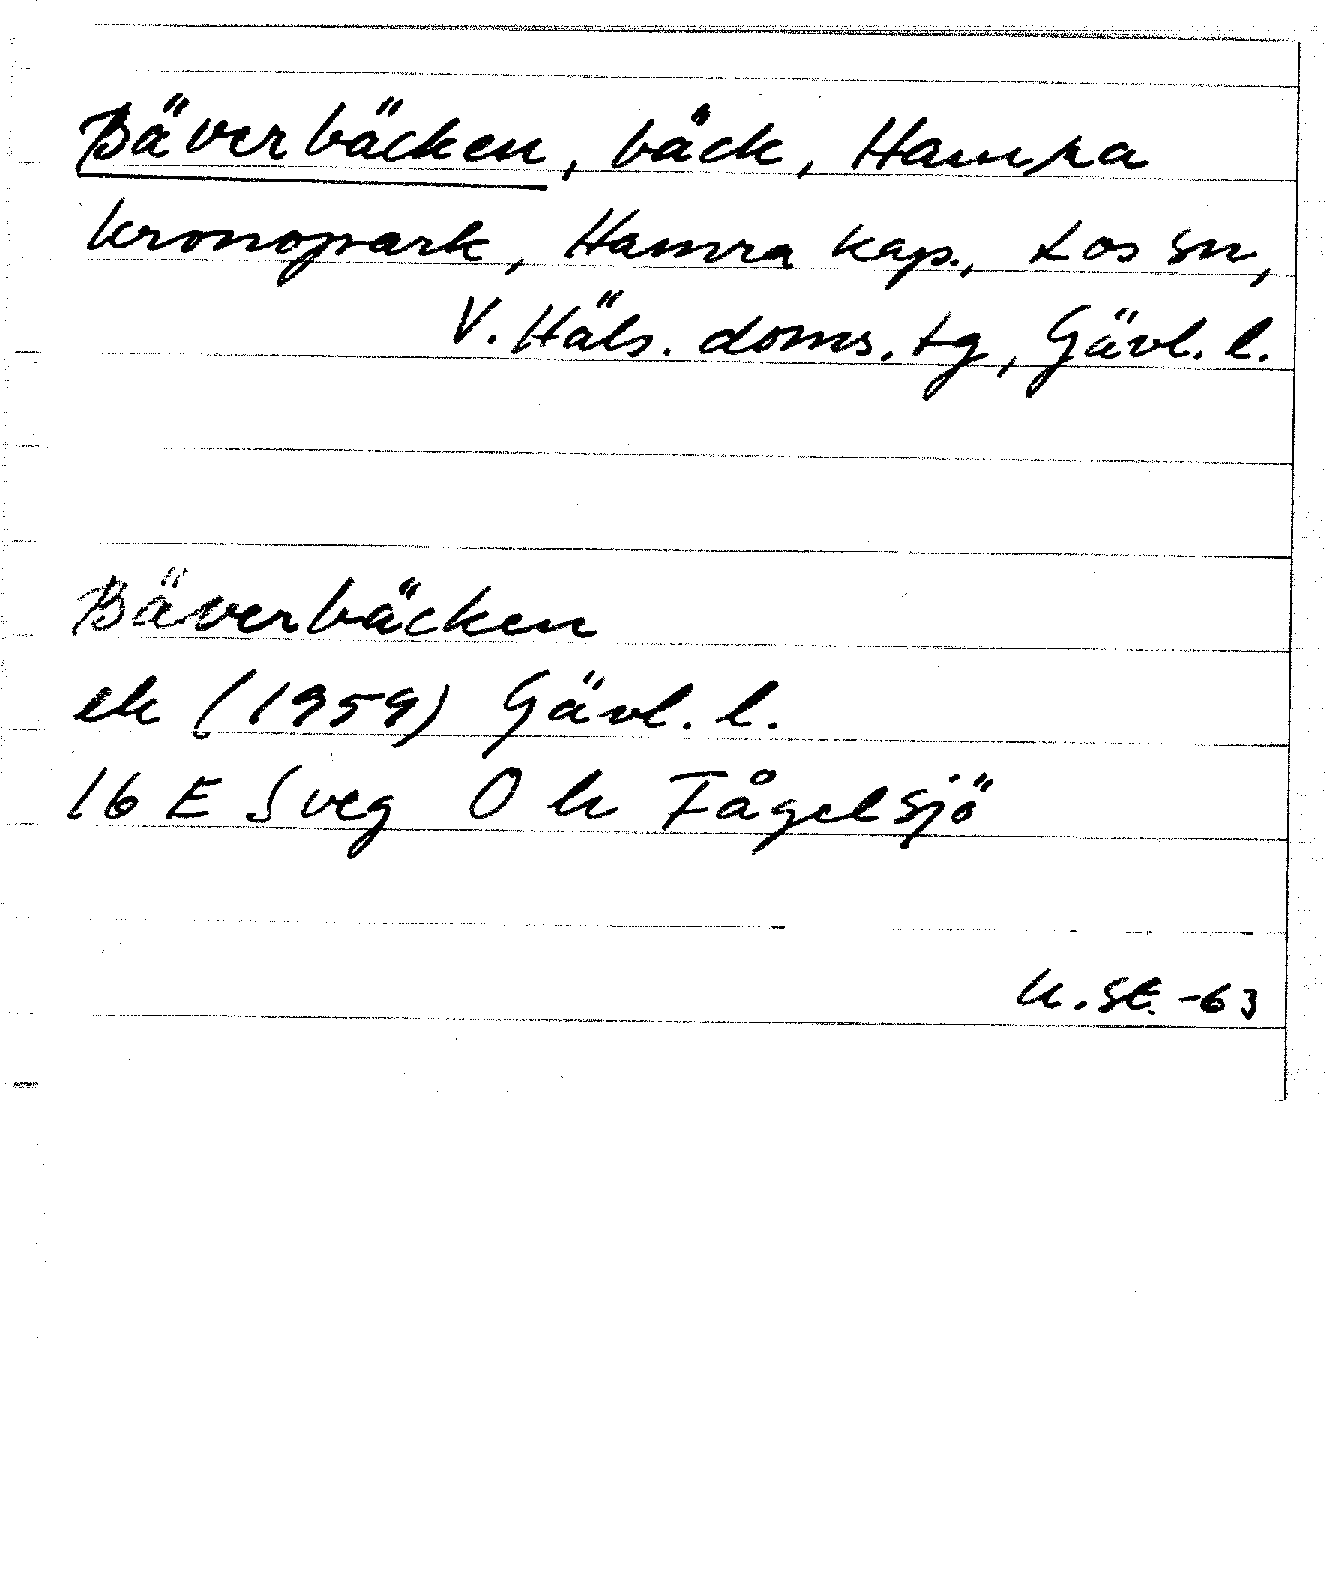 Bäverbäcken, bäck, Hamra
kronopark, Hamra kap., Los sn,
V. Häls. doms. tg, Gävl. l.
Bäverbäcken
ek (1959) Gävl. l.
16 E Sveg O k Fågelsjö
K. St. -63